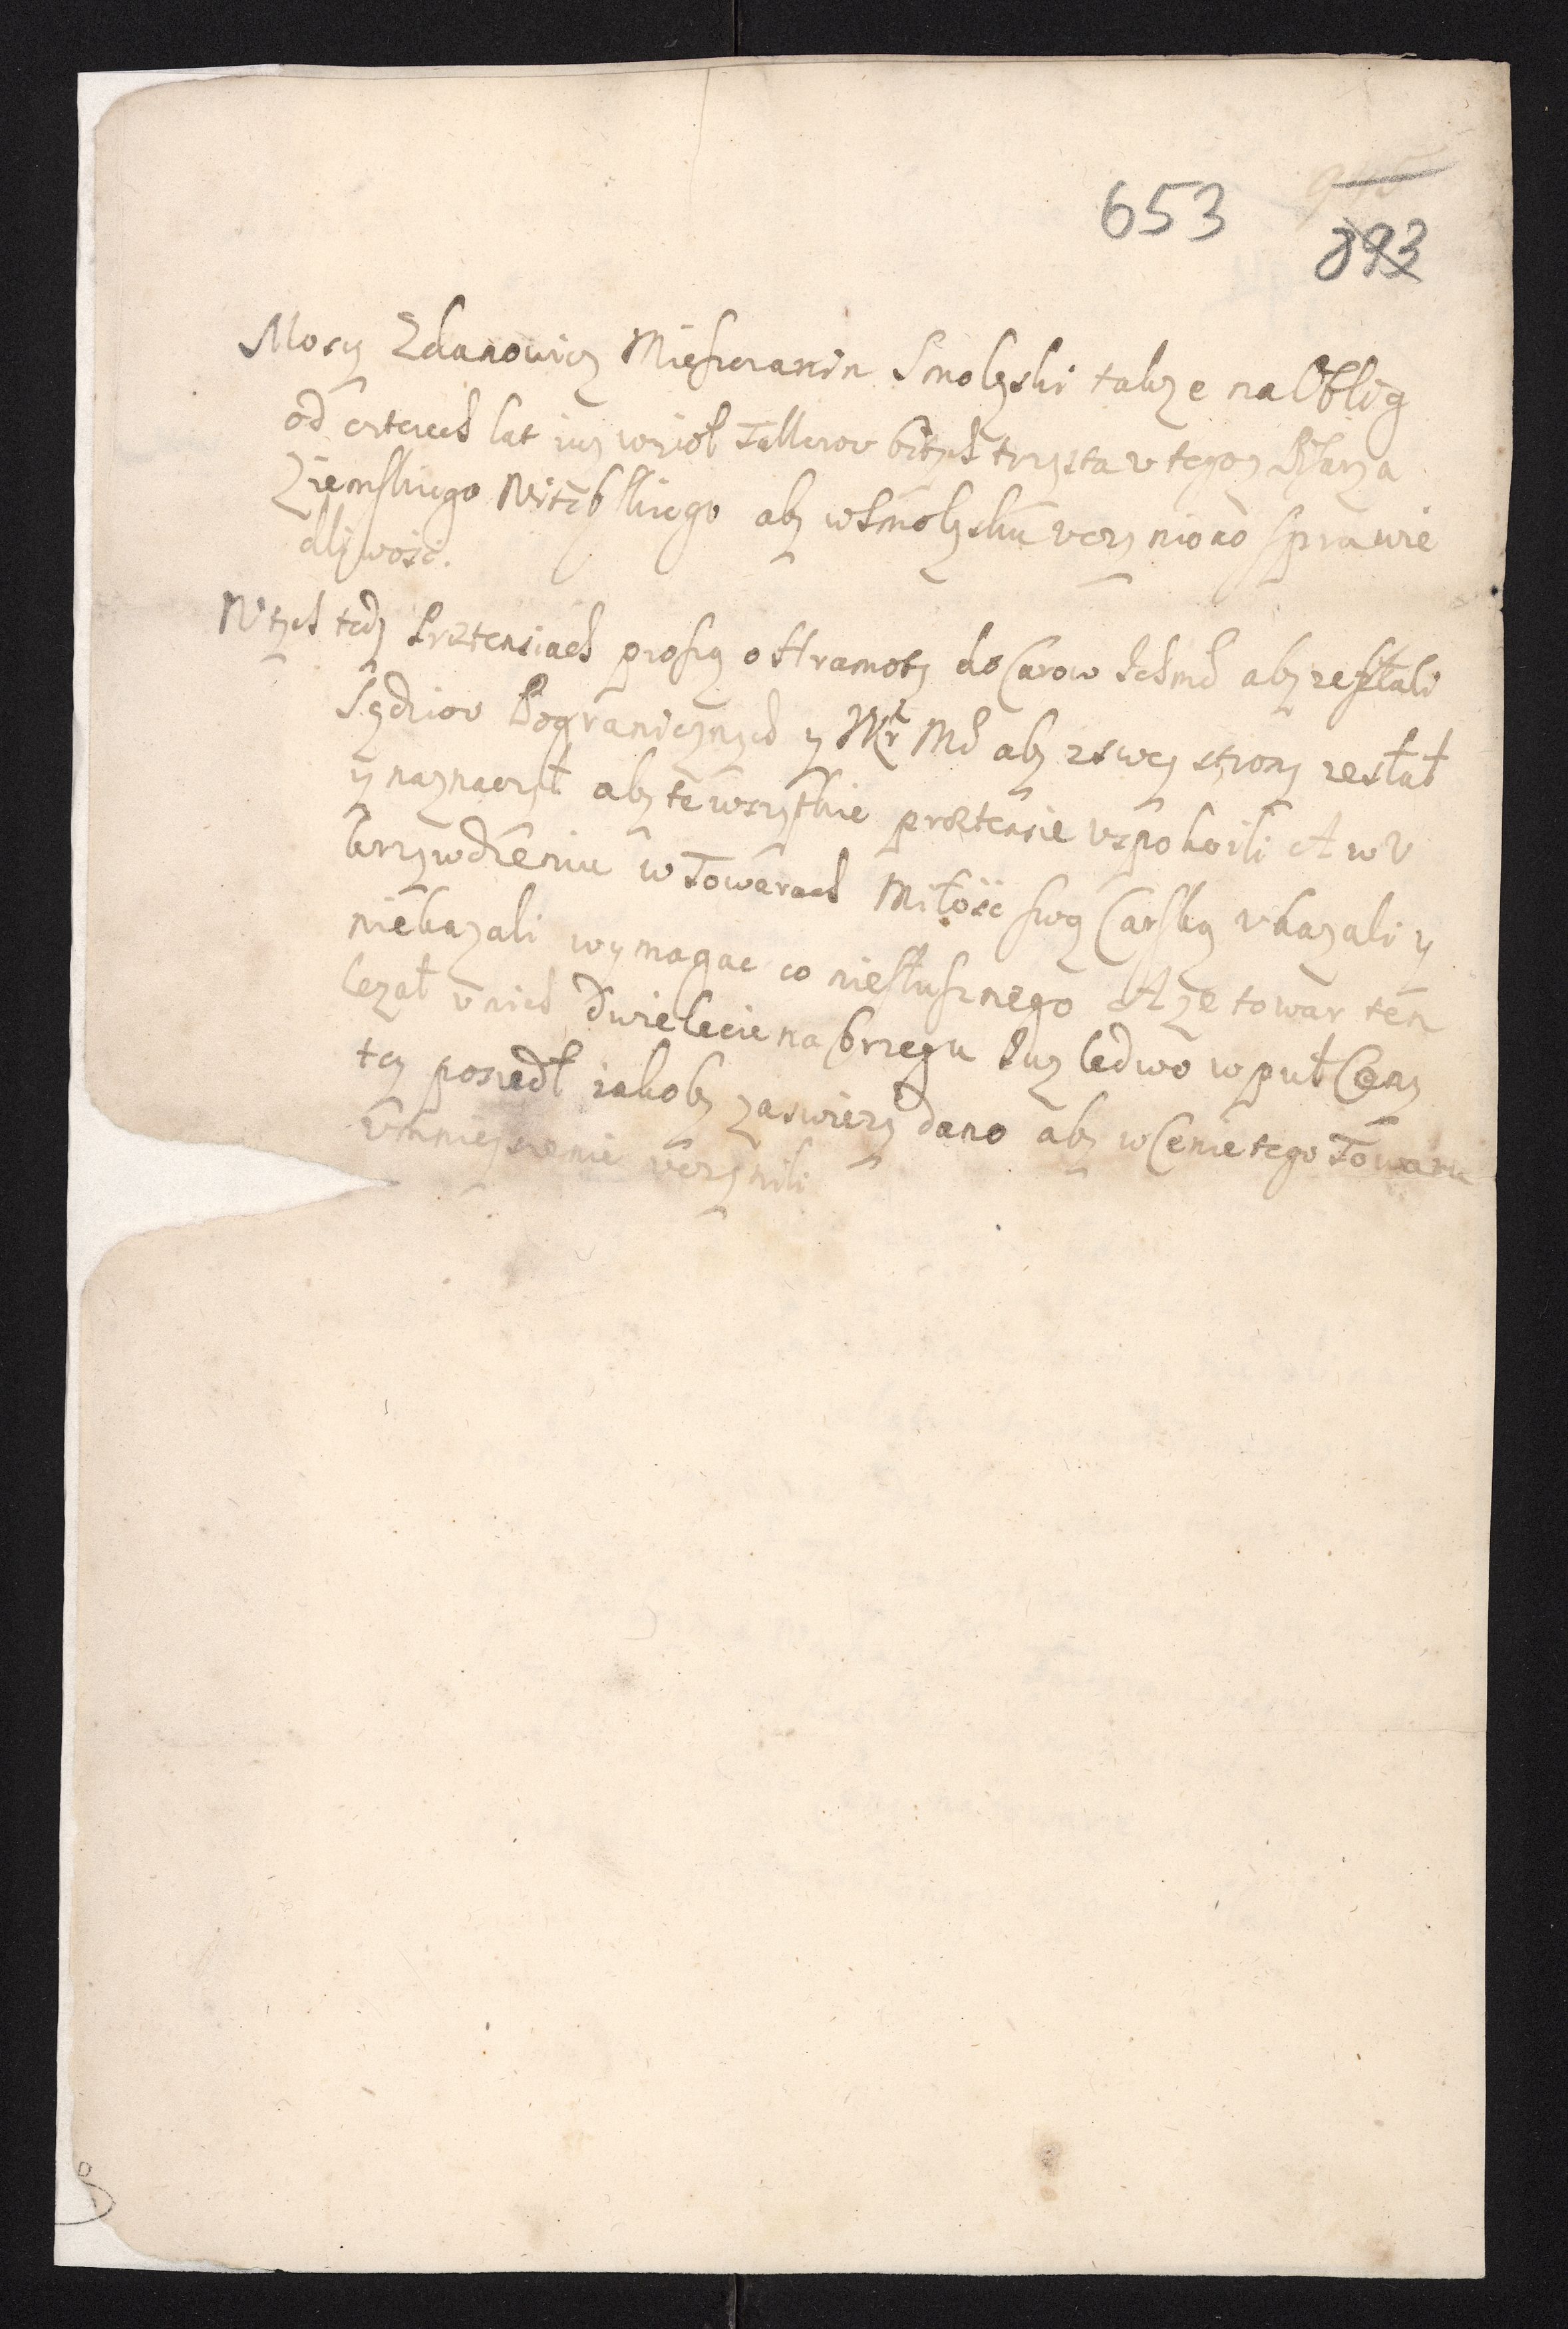 653
893
Mosy Zdanowicz Miesczanin Smolęski takze na Oblig
od czterech lat iuz wzioł Tallerow bitych trzysta v tegoz Pisarza
Ziemskiego Witebskiego aby w Smolęsku vczyniono sprawie
dliwosc.
W tych tedy Prætensiach proszą o Hramoty do Carow Ichmć aby zesłali
Sędziow Pogranicznych y Kr Mć aby z swey strony zesłał
y naznaczył aby te wszystkie prætensie vspokoili A w V
krzywdzeniu w Towarach Miłosc swą Carską vkazali y
niekazali wymagac co niesłusznego A ze towar ten
lezał v nich dwie lecie na brzegu Iuz ledwo w puł Ceny
tey poszedł iakoby zaswierzdano aby w Cenie tego Towaru
vmnieyszenie vczynili